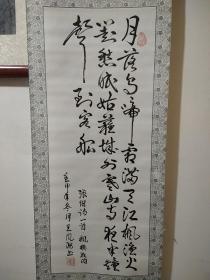 月落烏啼霜滿天江楓漁火
對愁眠姑蘇城外寒山寺夜半鐘
聲到客船
張继诗一首 楓橋夜泊